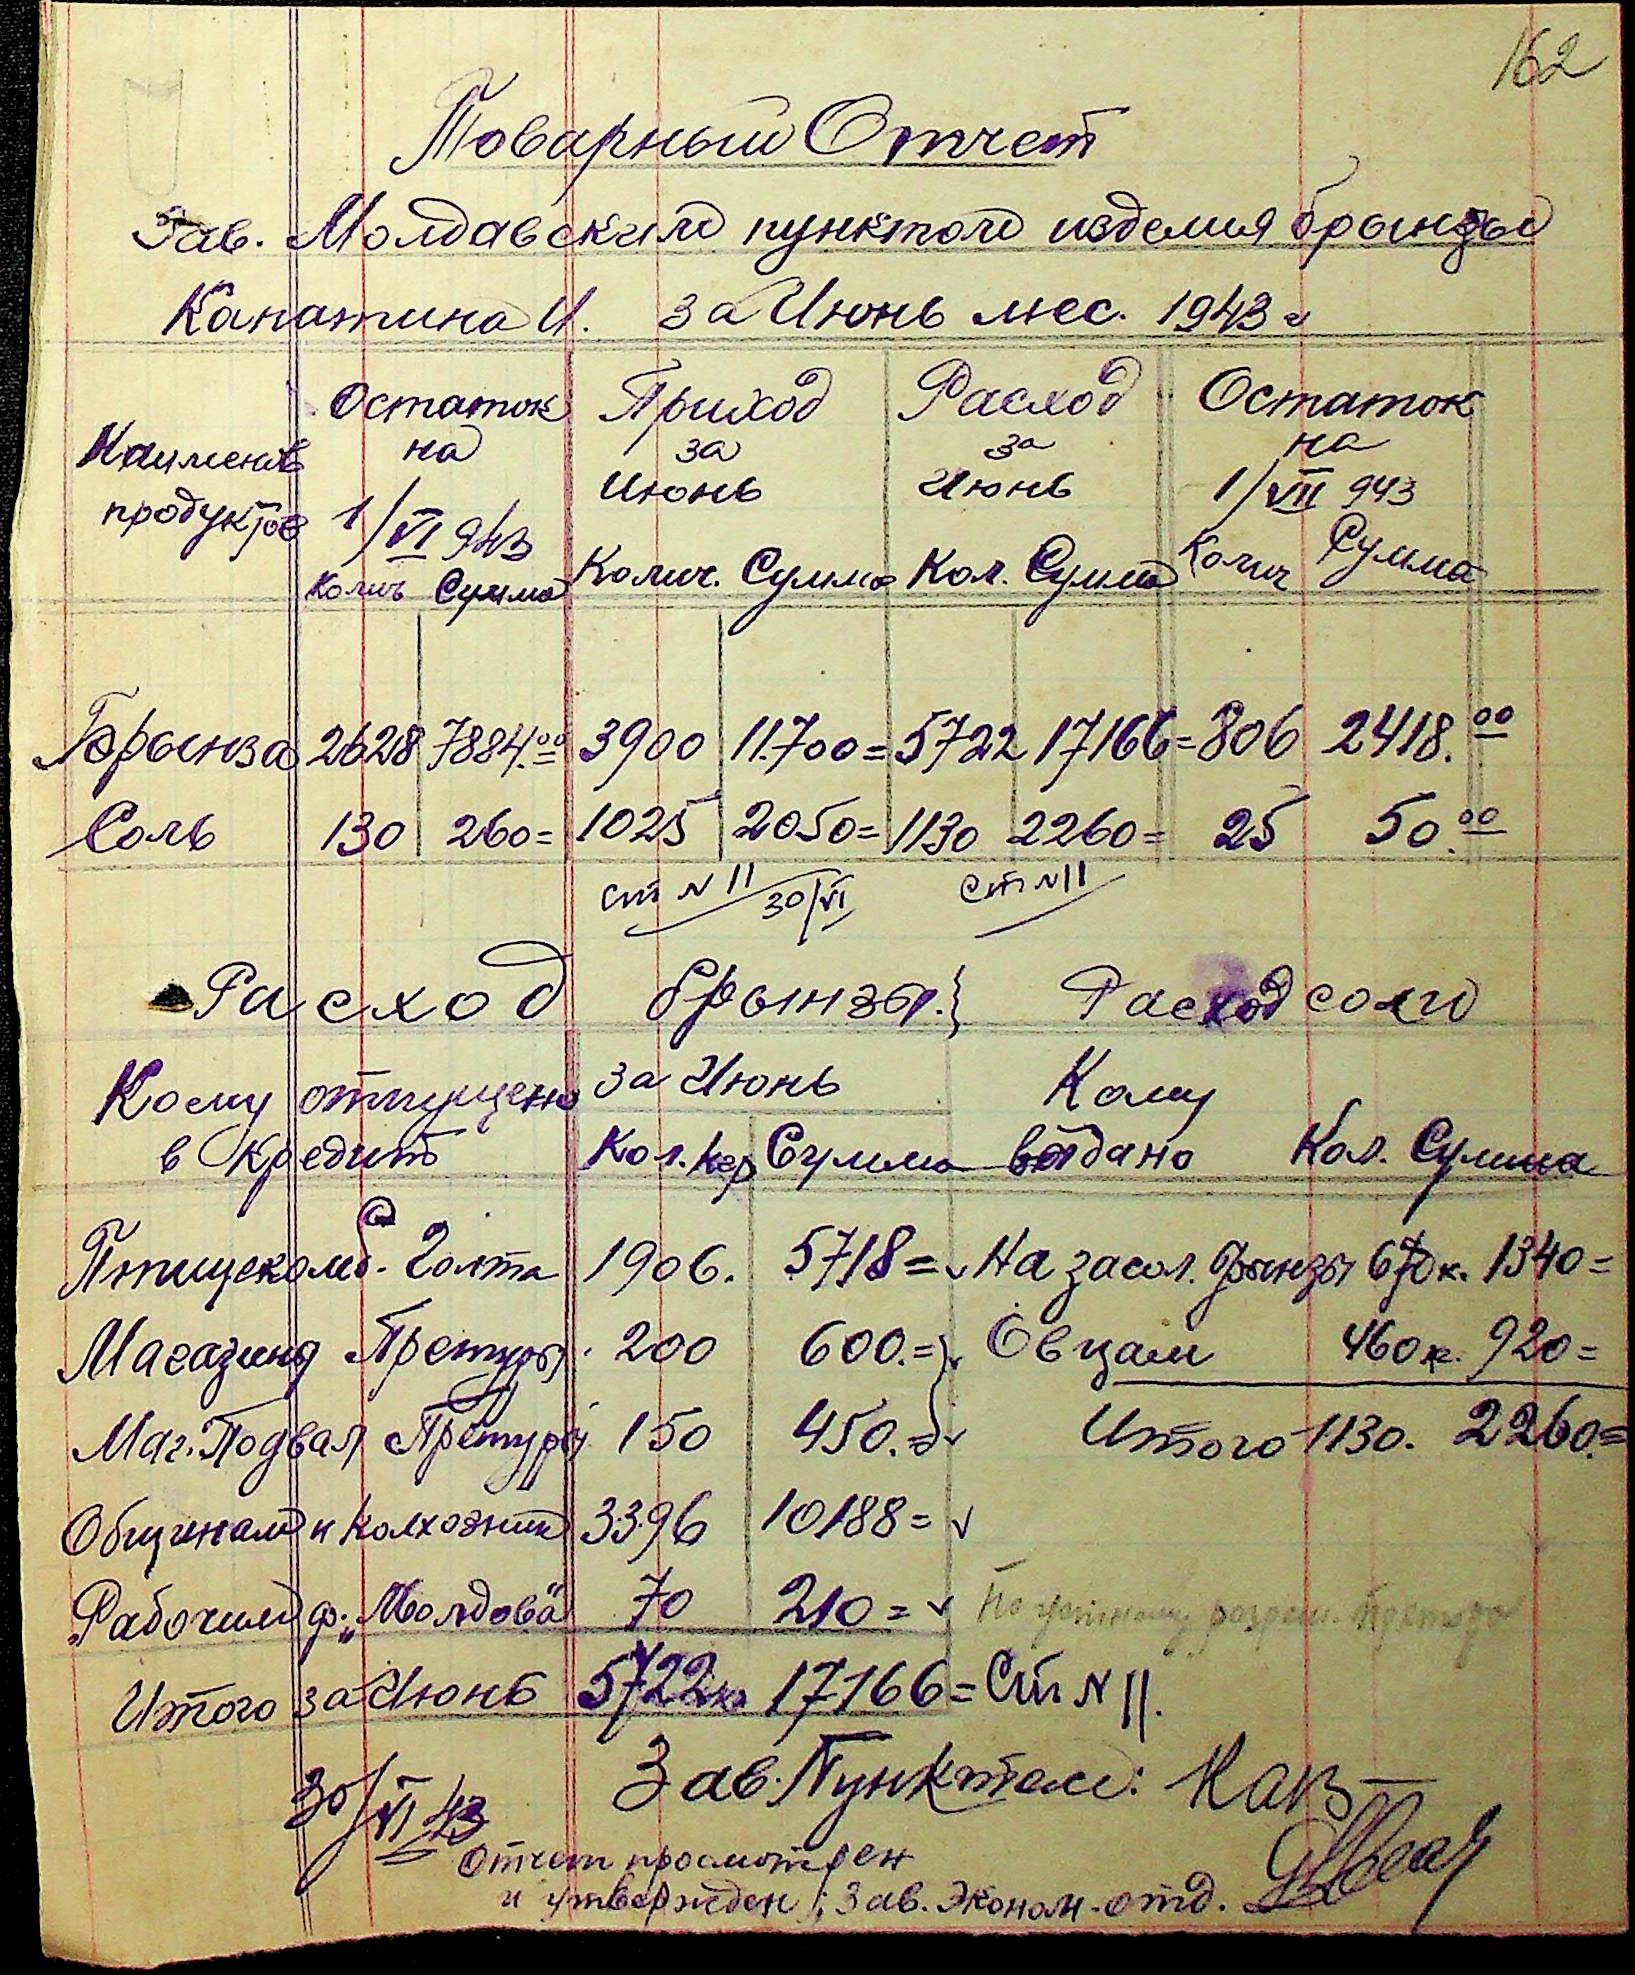 162
Товарный Отчет
Зав. Молдавским пунктом изделия брынзы
Капатина И. за Июнь мес. 1943 г
Наименов продуктов Остаток на 1/VI 943 Приход за Июнь Расход за Июнь Остаток на 1/VII 943
Колич Сумма Колич. Сумма Кол. Сумма Колич Сумма
Брынза 2628 7884.00 3900 11.700= 5722 17166= 806 2418.00
Соль 130 260= 1025 2050= 1130 2260= 25 50.00
Ст N 11 30/VI Ст N 11
Расход брынзы. Расход соли
Кому отпущено за Июнь Кому
в Кредит Кол. кгр Сумма выдано Кол. Сумма
Птицекомб. Голта 1906. 5718= На засол. брынзы 670 к. 1340=
Магазину Претуры. 200 600.= Овцам 460 к. 920=
Маг. Подвал Претуры 150 450.= Итого 1130. 2260.=
Общинам и колхозник 3396 10188=
Рабочим ф. „Молдова" 70 210= По устному разреш. Претора
Итого за Июнь 5722 17166= Ст N 11.
30/VI 43 Зав. Пунктом: Кап
Отчет просмотрен
и утвержден; Зав. Эконом. отд.